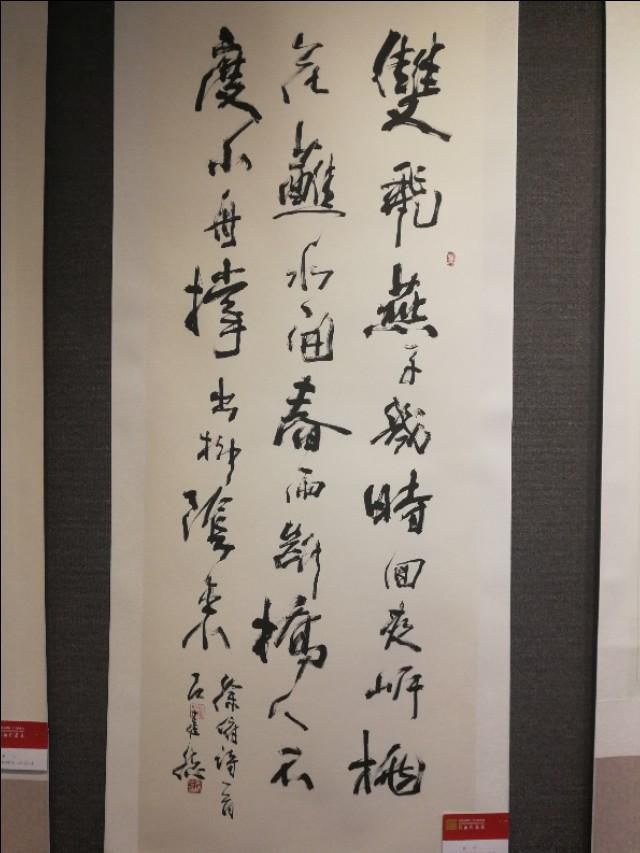 雙飛燕子幾時回夾岸桃
花蘸水開春雨斷橋人不
度小舟撐出柳陰來
徐俯詩一首
石